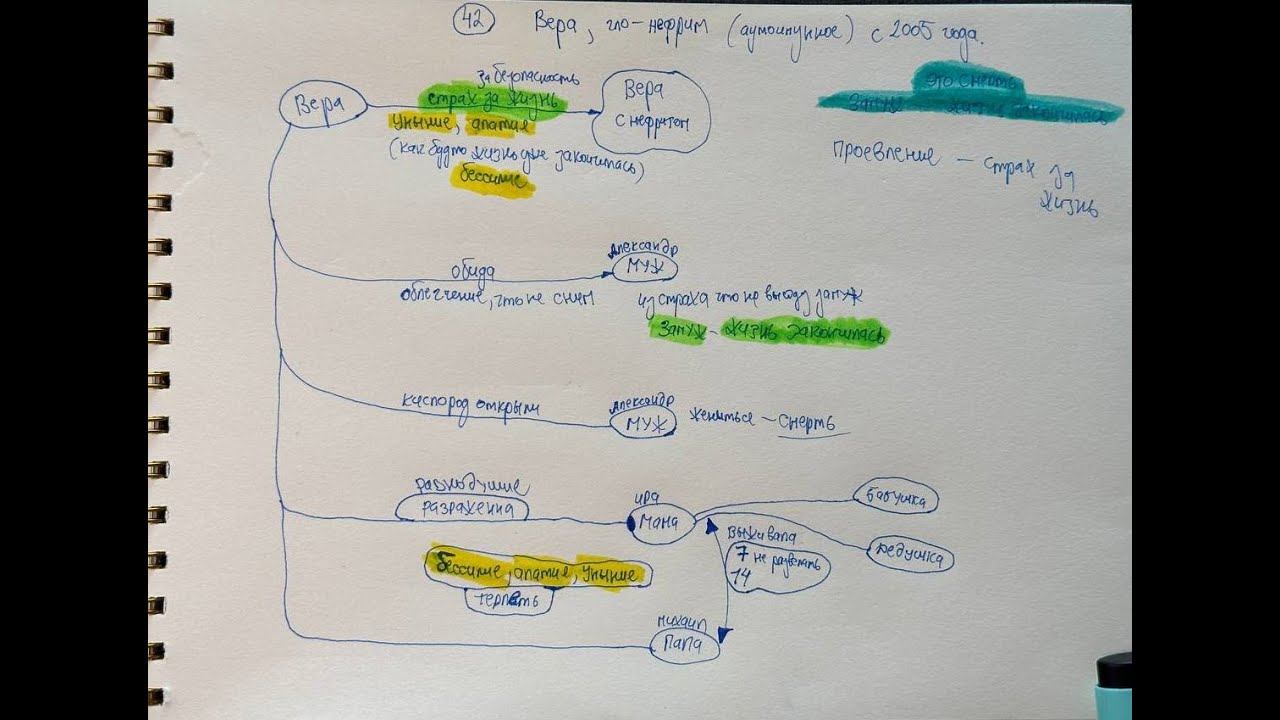 42 Вера, гло-нефрит (аутоимунное) с 2005 года.
это смерть
замуж жизнь закончилась
Проевление - страх за
жизнь
за безопасность
Вера страх за жизнь Вера
с нефритом
уныние, апатия
(как будто жизнь уже закончилась)
бессилие
Александр
обида муж
облегчение, что не с ним
из страха что не выйду замуж
замуж - жизнь закончилась
кислород открыли Александр
муж жениться - смерть
равнодушие
разражение
ира
мама
бабушка
дедушка
выживала
7 не разведать
14
бессилие, апатия, уныние
терпеть
михаил
папа